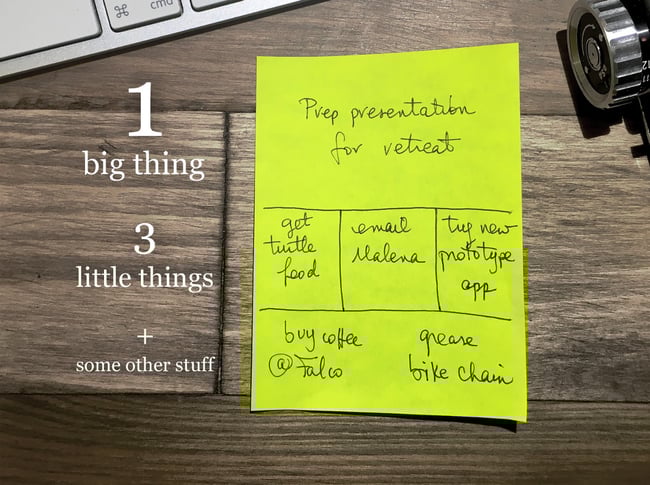 ⌘ cmd
1
big thing
Prep presentation
for retreat
3
little things
get
turtle
food
email
Malena
try new
prototype
app
+
some other stuff
buy coffee
@ Falco
grease
bike chain